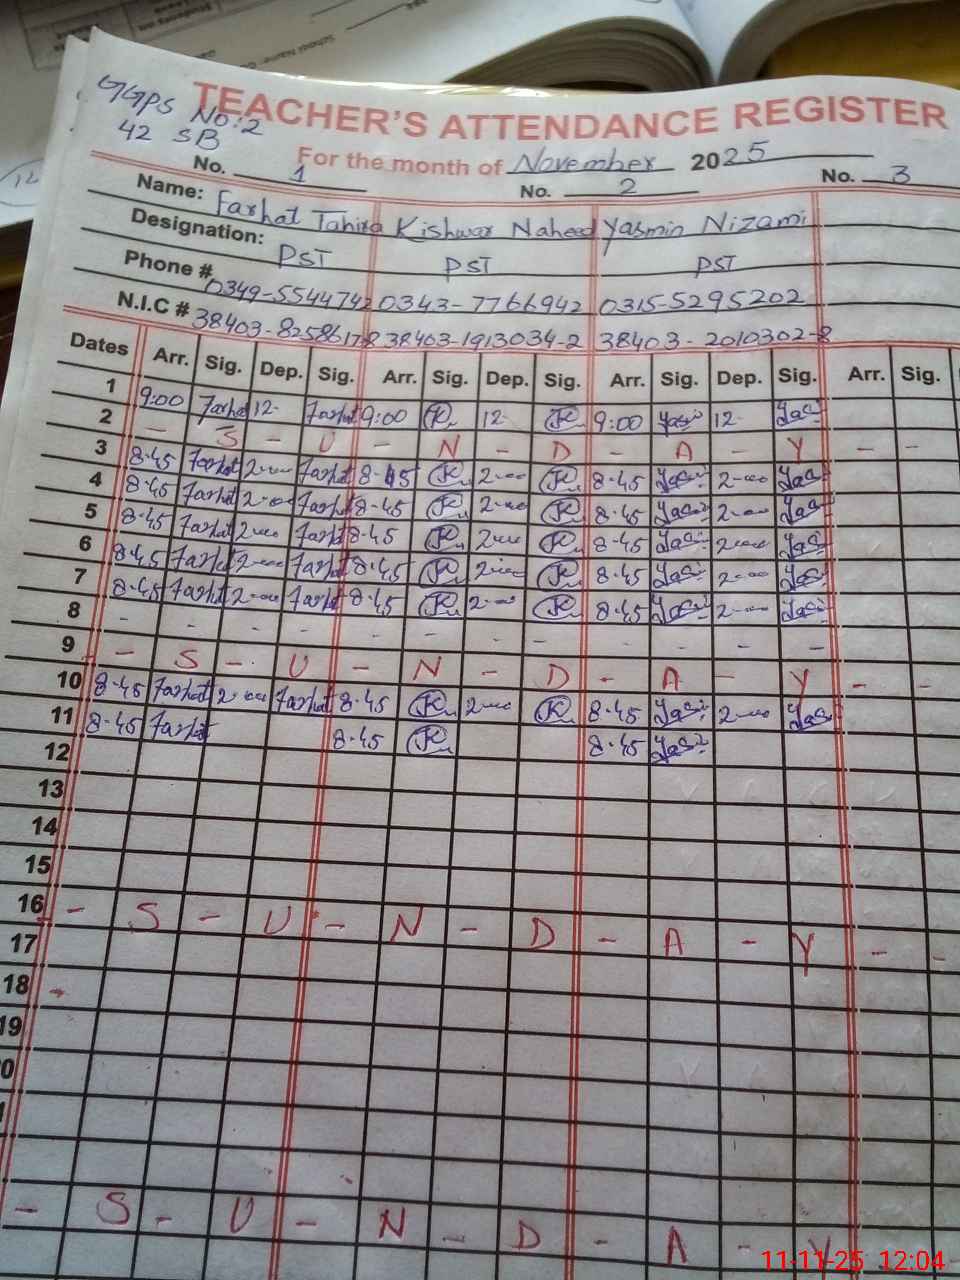 GGPS NO:2
42 SB
TEACHER'S ATTENDANCE REGISTER
For the month of November 2025
No. 1 No. 2 No. 3
Name: Farhat Tahira Kishwar Naheed Yasmin Nizami
Designation: PST PST PST
Phone # 0349-5544742 0343-7766942 0315-5295202
N.I.C # 38403-8258617-8 38403-1913034-2 38403-2010302-8
Dates Arr. Sig. Dep. Sig. Arr. Sig. Dep. Sig. Arr. Sig. Dep. Sig. Arr. Sig.
1 9:00 Farhat 12- Farhat 9:00 K 12- K 9:00 Yas 12- Yas
2 - S - U - N - D - A - Y - -
3 8.45 Farhat 2-00 Farhat 8.45 K 2-00 K 8.45 Yas 2-00 Yas
4 8.45 Farhat 2-00 Farhat 8.45 K 2-00 K 8.45 Yas 2-00 Yas
5 8.45 Farhat 2-00 Farhat 8.45 K 2-00 K 8.45 Yas 2-00 Yas
6 8.45 Farhat 2-00 Farhat 8.45 K 2-00 K 8.45 Yas 2-00 Yas
7 8.45 Farhat 2-00 Farhat 8.45 K 2-00 K 8.45 Yas 2-00 Yas
8 - - - - - - - - - - - -
9 - S - U - N - D - A - Y - -
10 8.45 Farhat 2-00 Farhat 8.45 K 2-00 K 8.45 Yas 2-00 Yas
11 8.45 Farhat 8.45 K 8.45 Yas
12
13
14
15
16 - S - U - N - D - A - Y - -
17
18
19
- S - U - N - D - A - Y
11-11-25 12:04